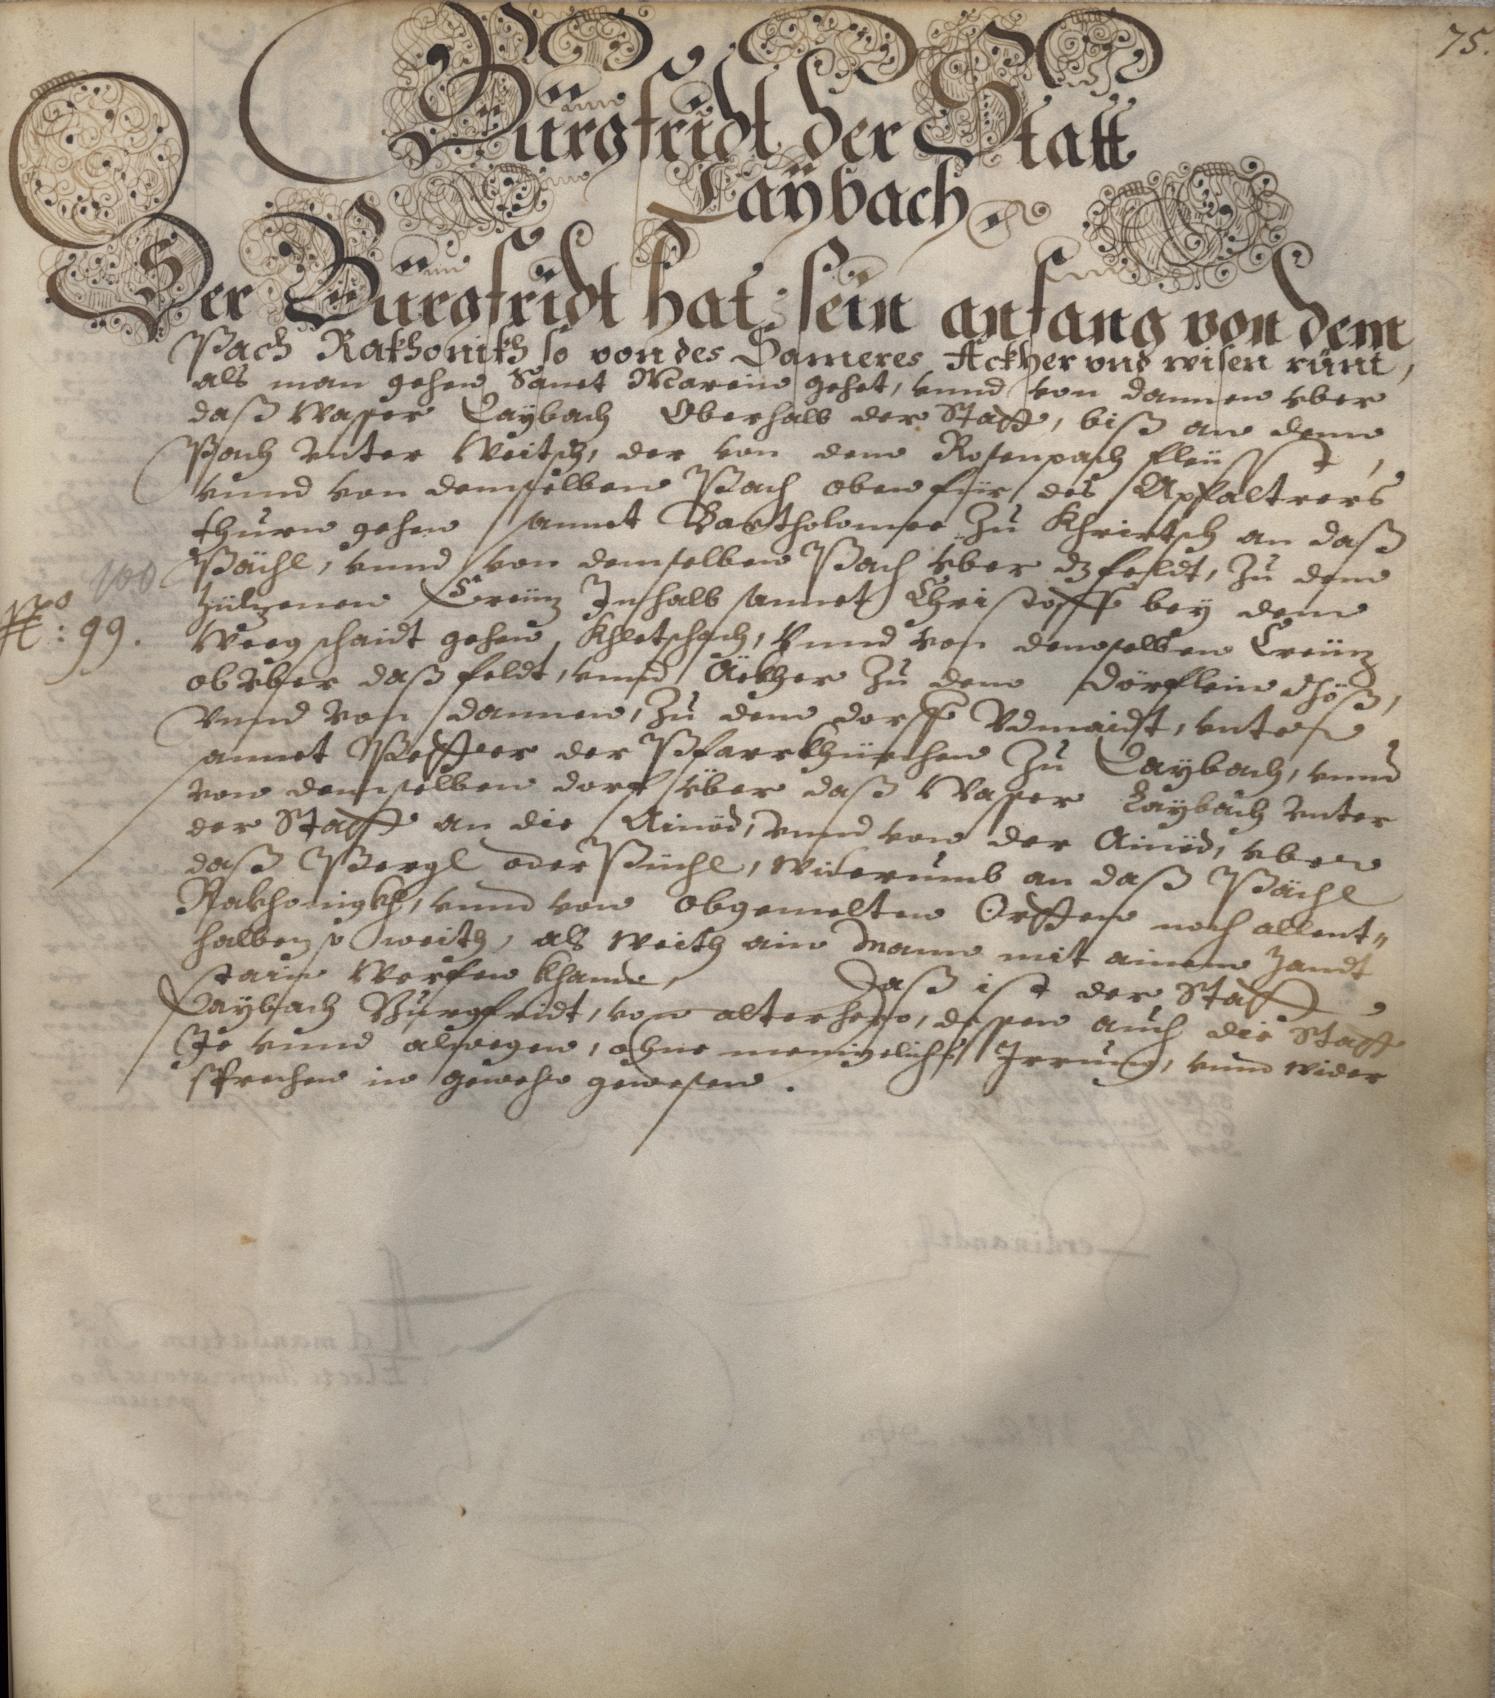 75.
Burgfridt der Statt
Laÿbach
Der Burgfridt hat sein anfang von dem
Pach Rakhonikh so von des Sameres Äckher vnd wisen rünt,
als man gehen Sanct Marein gehet, vnnd von dannen vber
daß Wasser Laÿbach Oberhalb der Statt, biß an denn
Pach vnter Weitsch, der von dem Rosenpach fleüsst,
vnnd von demselben Pach oben für des Apfaltrers
thurn gehen sannct Bartholomee Zu Kheirtsch an daß
Pächl, vnnd von demselben Pach über dz feldt, zu dem
hülzenen Creüz Inhalb sannct Christoff beÿ dem
Weegschaidt gehen Khletschach, Vnnd von demselben Creüz
ob vber daß feldt, vnnd Äckher Zu dem dörflein
Vnnd von dannen, Zu dem dorff Vdmaidt, vnter
sannct Petter der Pfarrkhürchen Zu Laÿbach, vnnd
von demselben dorf über daß Wasser Laÿbach vnter
der Statt an die Ainöd, vnnd von der Ainöd, vber
daß Pergl oder Püchl, widerumb an daß Pächl
Rakhonigkh, vnnd von obgemelten Orthen noch allent„
halben so weith, als weith ain Mann mit ainem handt
stain werfen khann, Daß ist der Statt
Laÿbach Burgfridt, von alter hero, dessen auch die Statt
Je vnnd alwegen, ohne meniglichs Irrung, vnnd wider
sprechen in gewehr gewesen.
100
No: 99.